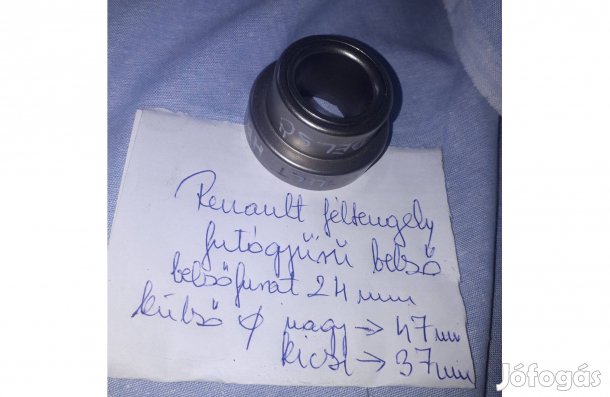 Renault féltengely
futógyűrű belső
belsőfurat 24 mm
külső ϕ nagy → 47 mm
kicsi → 37 mm
Jófogás